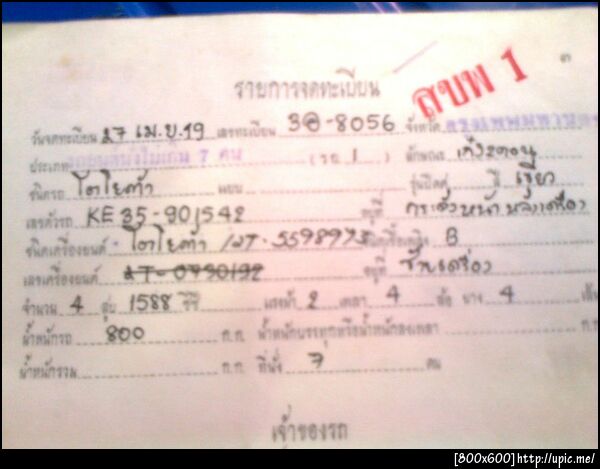 ๓
สขพ 1
รายการจดทะเบียน
วันจดทะเบียน 27 เม.ย.19 เลขทะเบียน 3ฉ-8056 จังหวัด กรุงเทพมหานคร
ประเภท รถยนต์นั่งไม่เกิน 7 คน (รย 1) ลักษณะ เก๋งสองตอน
ชนิดรถ โตโยต้า แบบ รุ่นปีคศ สี เขียว
เลขตัวรถ KE35-901542 อยู่ที่
ชนิดเครื่องยนต์ โตโยต้า 2T-5598975 ชนิดเชื้อเพลิง B
เลขเครื่องยนต์ 2T-0790192 อยู่ที่ ซ้ายเครื่อง
จำนวน 4 สูบ 1588 ซีซี แรงม้า 2 เพลา 4 ล้อ ยาง 4 เส้น
น้ำหนักรถ 800 ก.ก. น้ำหนักบรรทุกหรือน้ำหนักลงเพลา
น้ำหนักรวม ก.ก. ที่นั่ง 7 คน
เจ้าของรถ
[800x600]http://upic.me/